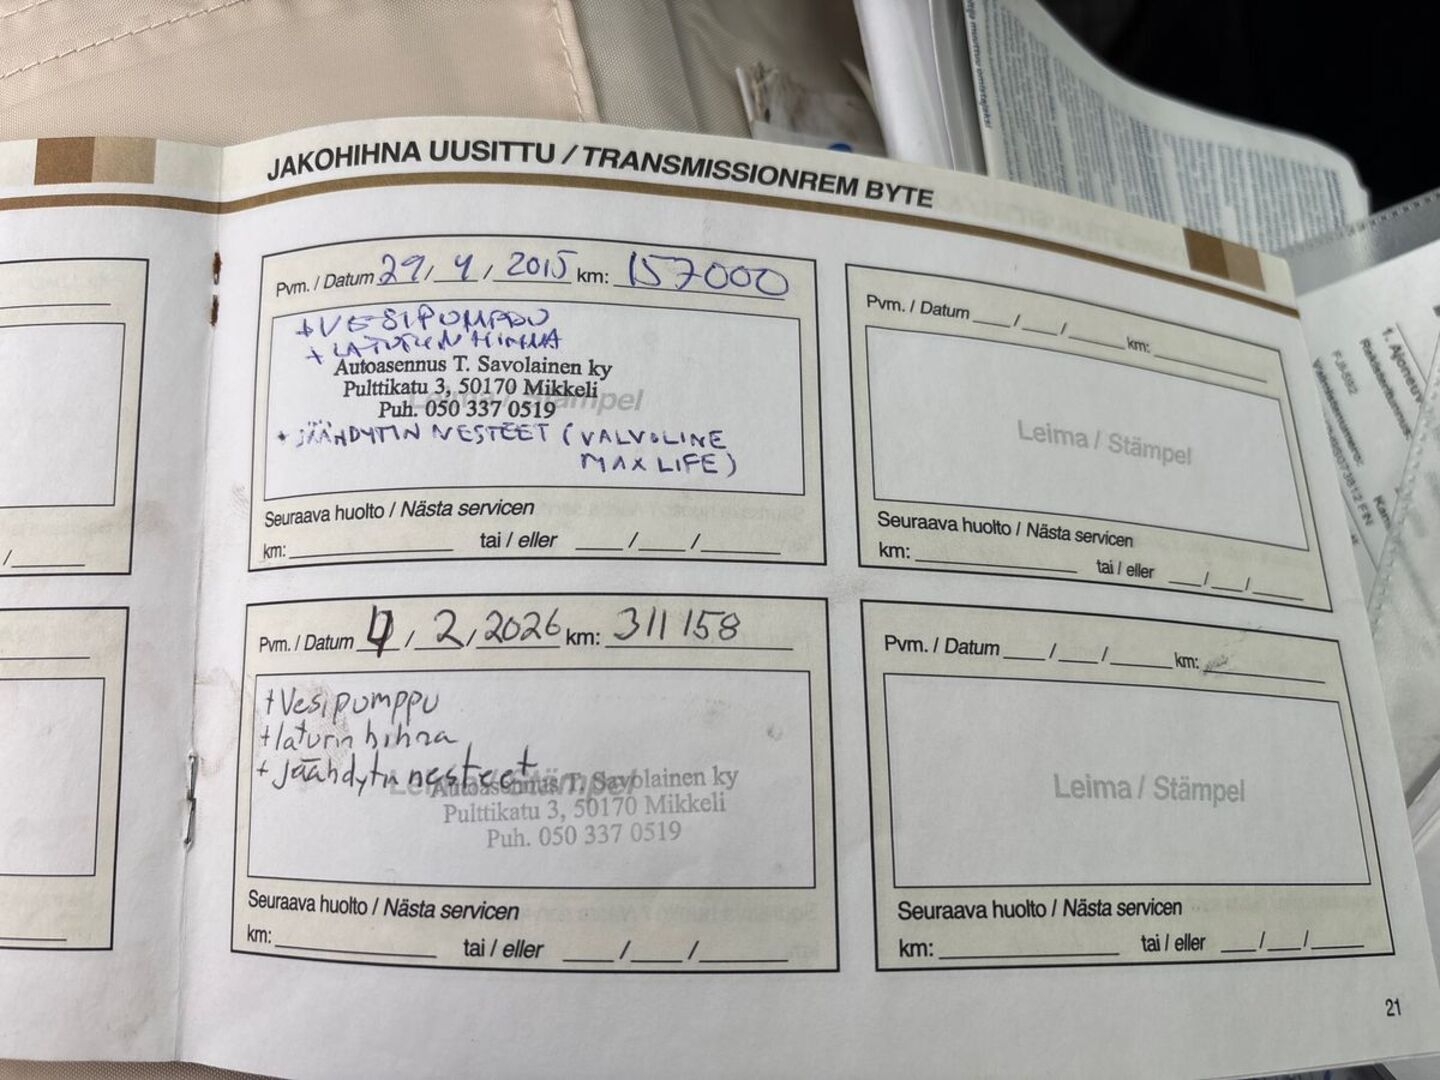 JAKOHIHNA UUSITTU / TRANSMISSIONREM BYTE
Pvm. / Datum 29 / 4 / 2015 km: 157000
+ VESIPUMPPU
+ LATURIN HIHNA
Autoasennus T. Savolainen ky
Pulttikatu 3, 50170 Mikkeli
Leima / Stämpel
Puh. 050 337 0519
+ JÄÄHDYTIN NESTEET (VALVOLINE
MAX LIFE)
Seuraava huolto / Nästa servicen
km: tai / eller / /
Pvm. / Datum / / km:
Leima / Stämpel
Seuraava huolto / Nästa servicen
km: tai / eller / /
Pvm. / Datum / 2 / 2026 km: 311 158
+ Vesipumppu
+ laturin hihna
+ Jäähdytin nesteet
Leima / Stämpel
Autoasennus T. Savolainen ky
Pulttikatu 3, 50170 Mikkeli
Puh. 050 337 0519
Seuraava huolto / Nästa servicen
km: tai / eller / /
Pvm. / Datum / / km:
Leima / Stämpel
Seuraava huolto / Nästa servicen
km: tai / eller / /
21
1. Ajoneuv
Rekisteritunnus